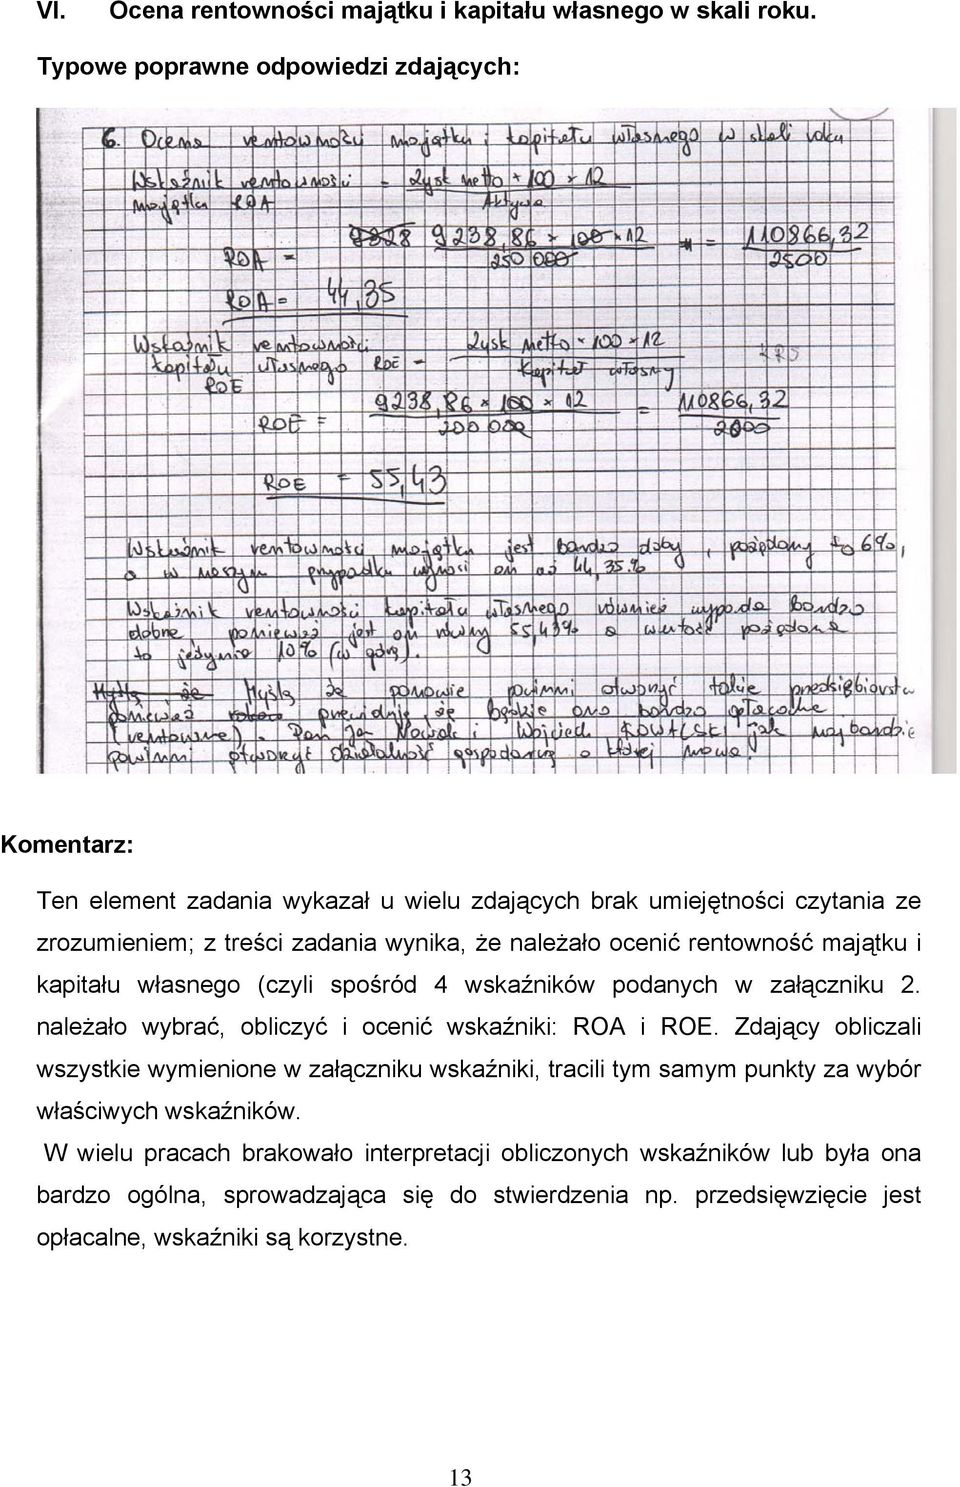 VI. Ocena rentowności majątku i kapitału własnego w skali roku.
Typowe poprawne odpowiedzi zdających:
6. Ocena rentowności majątku i kapitału własnego w skali roku
Wskaźnik rentowności = Zysk netto * 100 * 12
majątku ROA Aktywa
ROA = 9328 9238,86 * 100 * 12 = 110866,32
250 000 2500
ROA = 44,35
Wskaźnik rentowności Zysk netto * 100 * 12
kapitału własnego ROE = Kapitał własny
ROE
ROE = 9238,86 * 100 * 12 = 110866,32
200 000 2000
ROE = 55,43
Wskaźnik rentowności majątku jest bardzo dobry, pożądany to 6%,
a w naszym przypadku wynosi on aż 44,35%
Wskaźnik rentowności kapitału własnego również wypada bardzo
dobrze, ponieważ jest on równy 55,43% a wartość pożądana
to jedynie 10% (w górę).
Myślę że Myślę że panowie powinni otworzyć takie przedsiębiorstwo
ponieważ prewiduję, że będzie ono bardzo opłacalne
(rentowne). Pan Jan Nowak i Wojciech KOWALSKI jak najbardziej
powinni otworzyć działalność gospodarczą o której mowa.
Komentarz:
Ten element zadania wykazał u wielu zdających brak umiejętności czytania ze
zrozumieniem; z treści zadania wynika, że należało ocenić rentowność majątku i
kapitału własnego (czyli spośród 4 wskaźników podanych w załączniku 2.
należało wybrać, obliczyć i ocenić wskaźniki: ROA i ROE. Zdający obliczali
wszystkie wymienione w załączniku wskaźniki, tracili tym samym punkty za wybór
właściwych wskaźników.
W wielu pracach brakowało interpretacji obliczonych wskaźników lub była ona
bardzo ogólna, sprowadzająca się do stwierdzenia np. przedsięwzięcie jest
opłacalne, wskaźniki są korzystne.
13